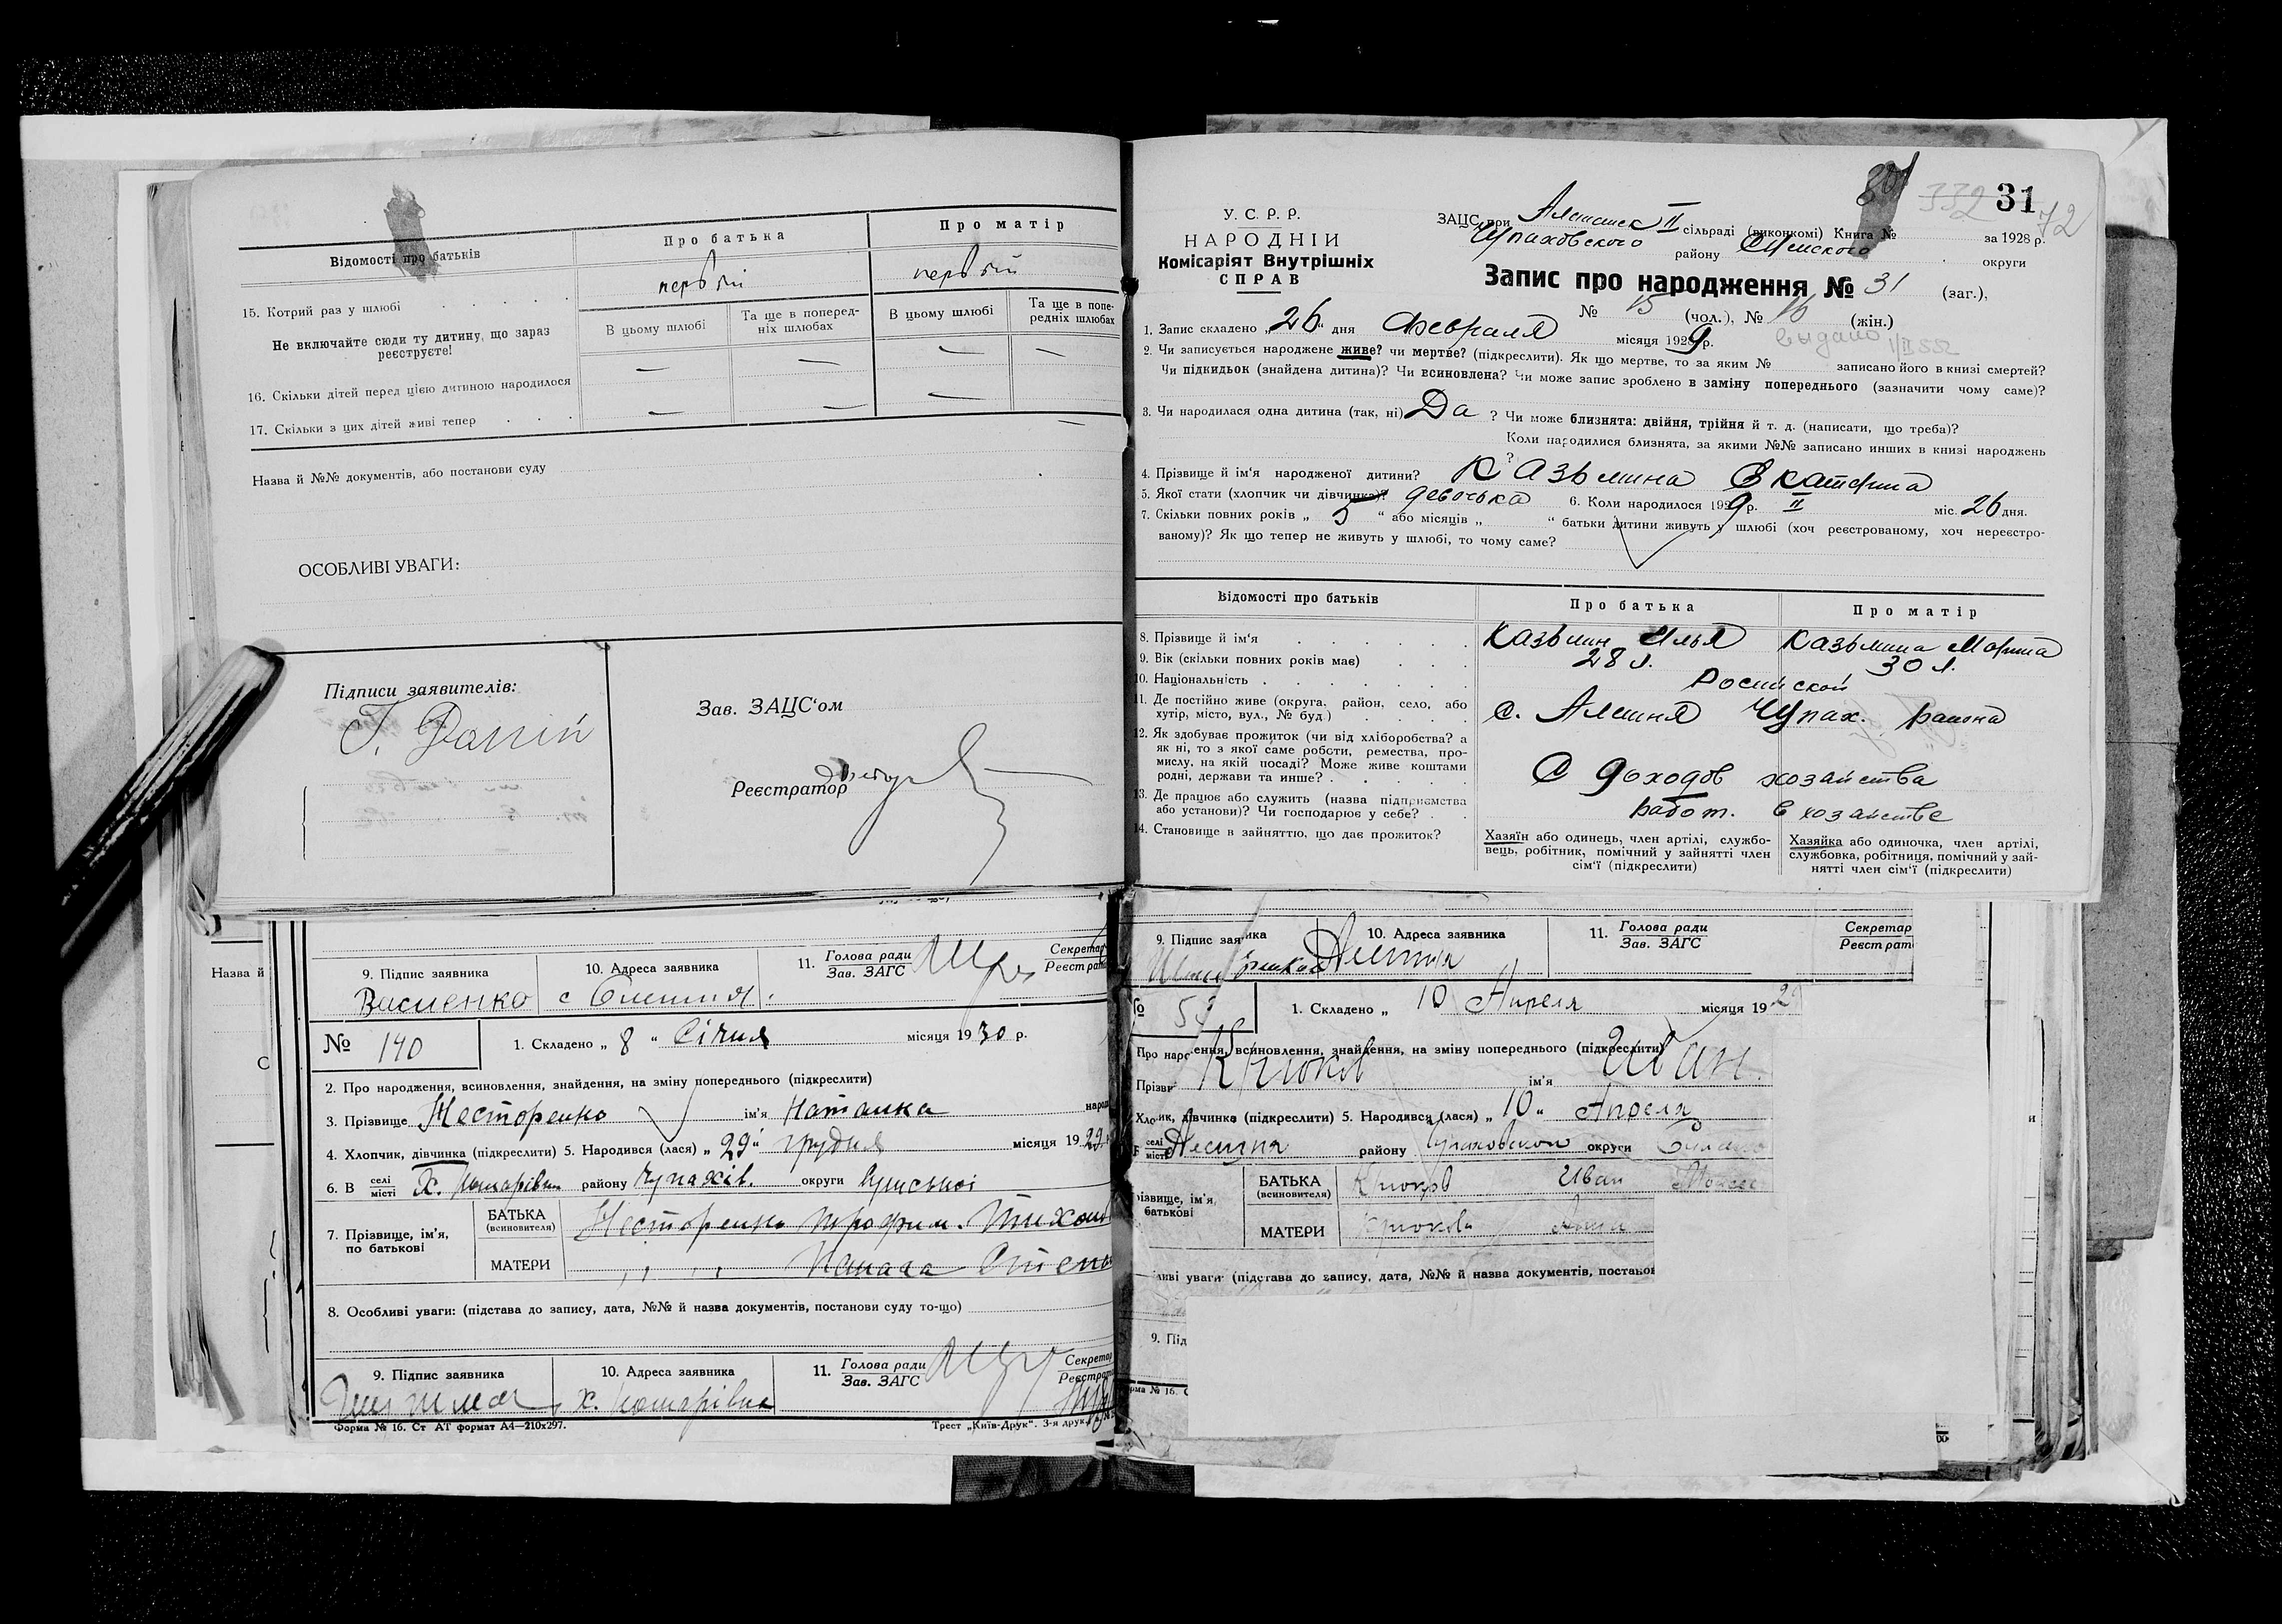 Відомості про батьків
Про батька
Про матір
15. Котрий раз у шлюбі
первый
первый
Не включайте сюди ту дитину, що зараз реєструєте!
В цьому шлюбі
Та ще в попередніх шлюбах
В цьому шлюбі
Та ще в попередніх шлюбах
16. Скільки дітей перед цією дитиною народилося
— — — —
17. Скільки з цих дітей живі тепер
— — — —
Назва й №№ документів, або постанови суду
ОСОБЛИВІ УВАГИ:
Підписи заявителів:
Зав. ЗАЦС‘ом
Реєстратор
Назва й
9. Підпис заявника
10. Адреса заявника
11. Голова ради
Зав. ЗАГС
Секретар
Реєстрат
№ 140
1. Складено „ 8 “ Січня місяця 1930 р.
2. Про народження, всиновлення, знайдення, на зміну попереднього (підкреслити)
3. Прізвище Несторенко ім'я Наталка
4. Хлопчик, дівчинка (підкреслити) 5. Народився (лася) „ 29 “ грудня місяця 1929
6. В селі
місті
району Чупахів. округи Сумської
7. Прізвище, ім'я,
по батькові
БАТЬКА
(всиновителя)
Несторенко Трофим
МАТЕРИ
8. Особливі уваги: (підстава до запису, дата, №№ й назва документів, постанови суду то-що)
9. Підпис заявника
10. Адреса заявника
11. Голова ради
Зав. ЗАГС
Секретар
Форма № 16. Ст АТ формат А4—210х297.
Трест „Київ-Друк“. 3-я друк.
332 31
72
У. С. Р. Р.
НАРОДНІЙ
Комісаріят Внутрішніх
СПРАВ
ЗАЦС при II сільраді (виконкомі) Книга № за 1928 р.
Чупаховского району Сумского округи
Запис про народження № 31 (заг.),
№ 15 (чол.), № 16 (жін.)
1. Запис складено „26“ дня Февраля місяця 1929 р.
выдано
2. Чи записується народжене живе? чи мертве? (підкреслити). Як що мертве, то за яким № записано його в книзі смертей?
Чи підкидьок (знайдена дитина)? Чи всиновлена? Чи може запис зроблено в заміну попереднього (зазначити чому саме)?
3. Чи народилася одна дитина (так, ні) Да ? Чи може близнята: двійня, трійня й т. д. (написати, що треба)?
Коли народилися близнята, за якими №№ записано инших в книзі народжень
?
4. Прізвище й ім‘я народженої дитини? Казьмина Екатерина
5. Якої стати (хлопчик чи дівчинка)? девочька 6. Коли народилося 1929 р. II міс. 26 дня.
7. Скільки повних років „ 5 “ або місяців „ “ батьки дитини живуть у шлюбі (хоч реєстрованому, хоч нереєстро-
ваному)? Як що тепер не живуть у шлюбі, то чому саме?
Відомості про батьків
Про батька
Про матір
8. Прізвище й ім‘я
Казьмин Илья
Казьмина Марина
9. Вік (скільки повних років має)
28 л.
30 л.
10. Національність
11. Де постійно живе (округа, район, село, або
хутір, місто, вул., № буд.)
с. Алешня Чупах. района
12. Як здобуває прожиток (чи від хліборобства? а
як ні, то з якої саме роботи, ремества, про-
мислу, на якій посаді? Може живе коштами
родні, держави та инше?
С доходов хозайства
13. Де працює або служить (назва підприємства
або установи)? Чи господарює у себе?
работ. в хозайстве
14. Становище в зайняттю, що дає прожиток?
Хазяїн або одинець, член артілі, службо-
вець, робітник, помічний у зайнятті член
сім‘ї (підкреслити)
Хазяйка або одиночка, член артілі,
службовка, робітниця, помічний у зай-
нятті член сім‘ї (підкреслити)
9. Підпис заявника
10. Адреса заявника
11. Голова ради
Зав. ЗАГС
Секретар
Реєстрат
1. Складено „ 10 Апреля місяця 192
всиновлення, знайдення, на зміну попереднього (підкреслити)
Крюков ім'я Иван
дівчинка (підкреслити) 5. Народився (лася) „ 10 “ Апреля
селі
місті
району округи
БАТЬКА
(всиновителя)
Крюков Иван
МАТЕРИ
Крюкова
уваги (підстава до запису, дата, №№ й назва документів,
9. Під